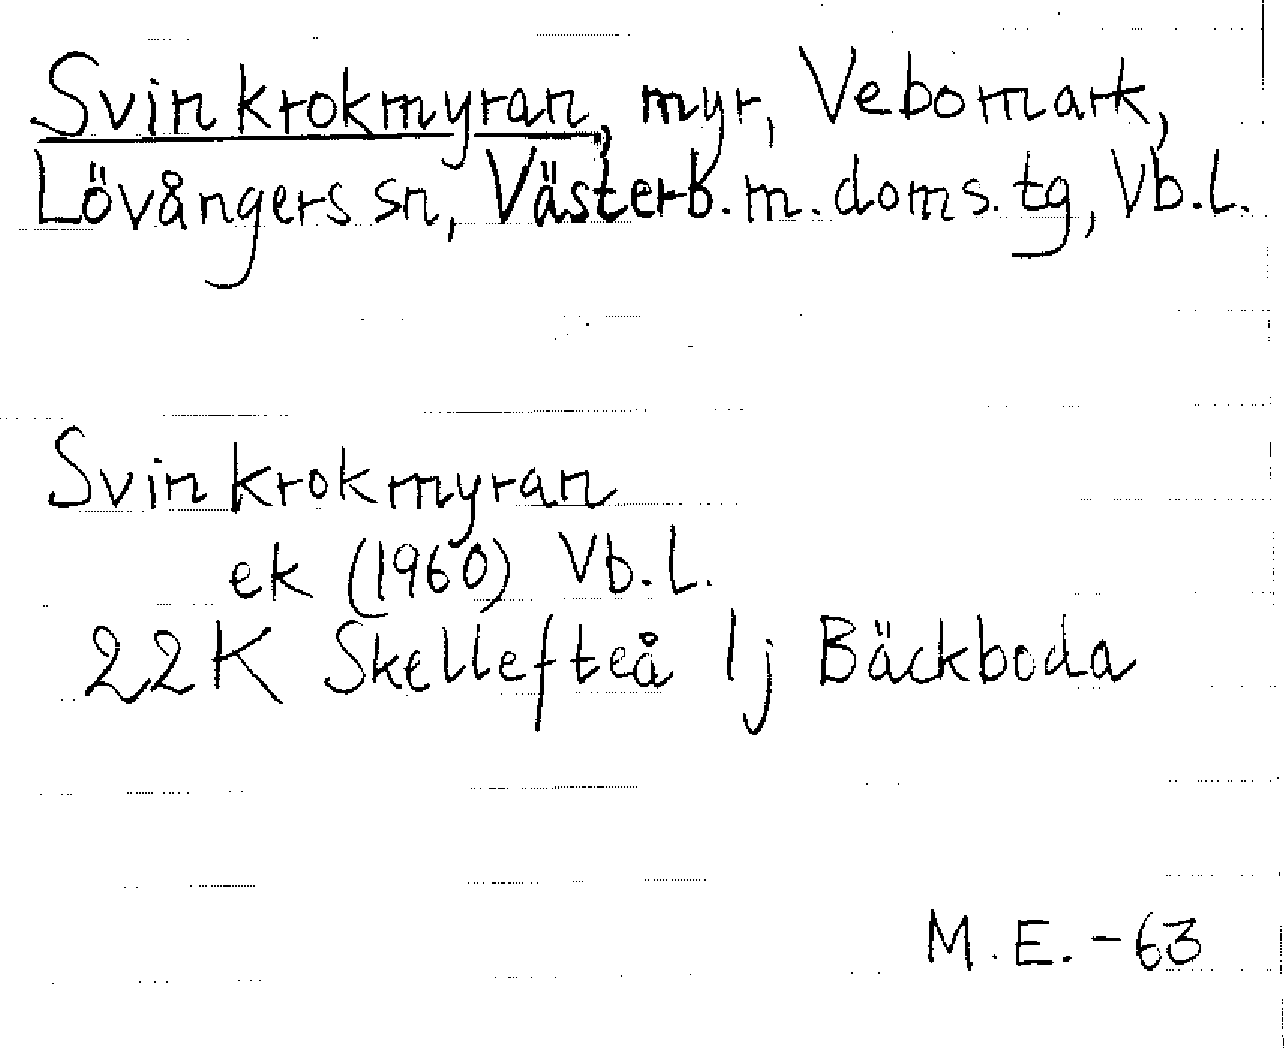 Svinkrokmyran, myr, Vebomark,
Lövångers sn, Västerb. m. doms. tg, Vb. l.
Svinkrokmyran
ek (1960) Vb. l.
22K Skellefteå 1j Bäckboda
M. E. - 63